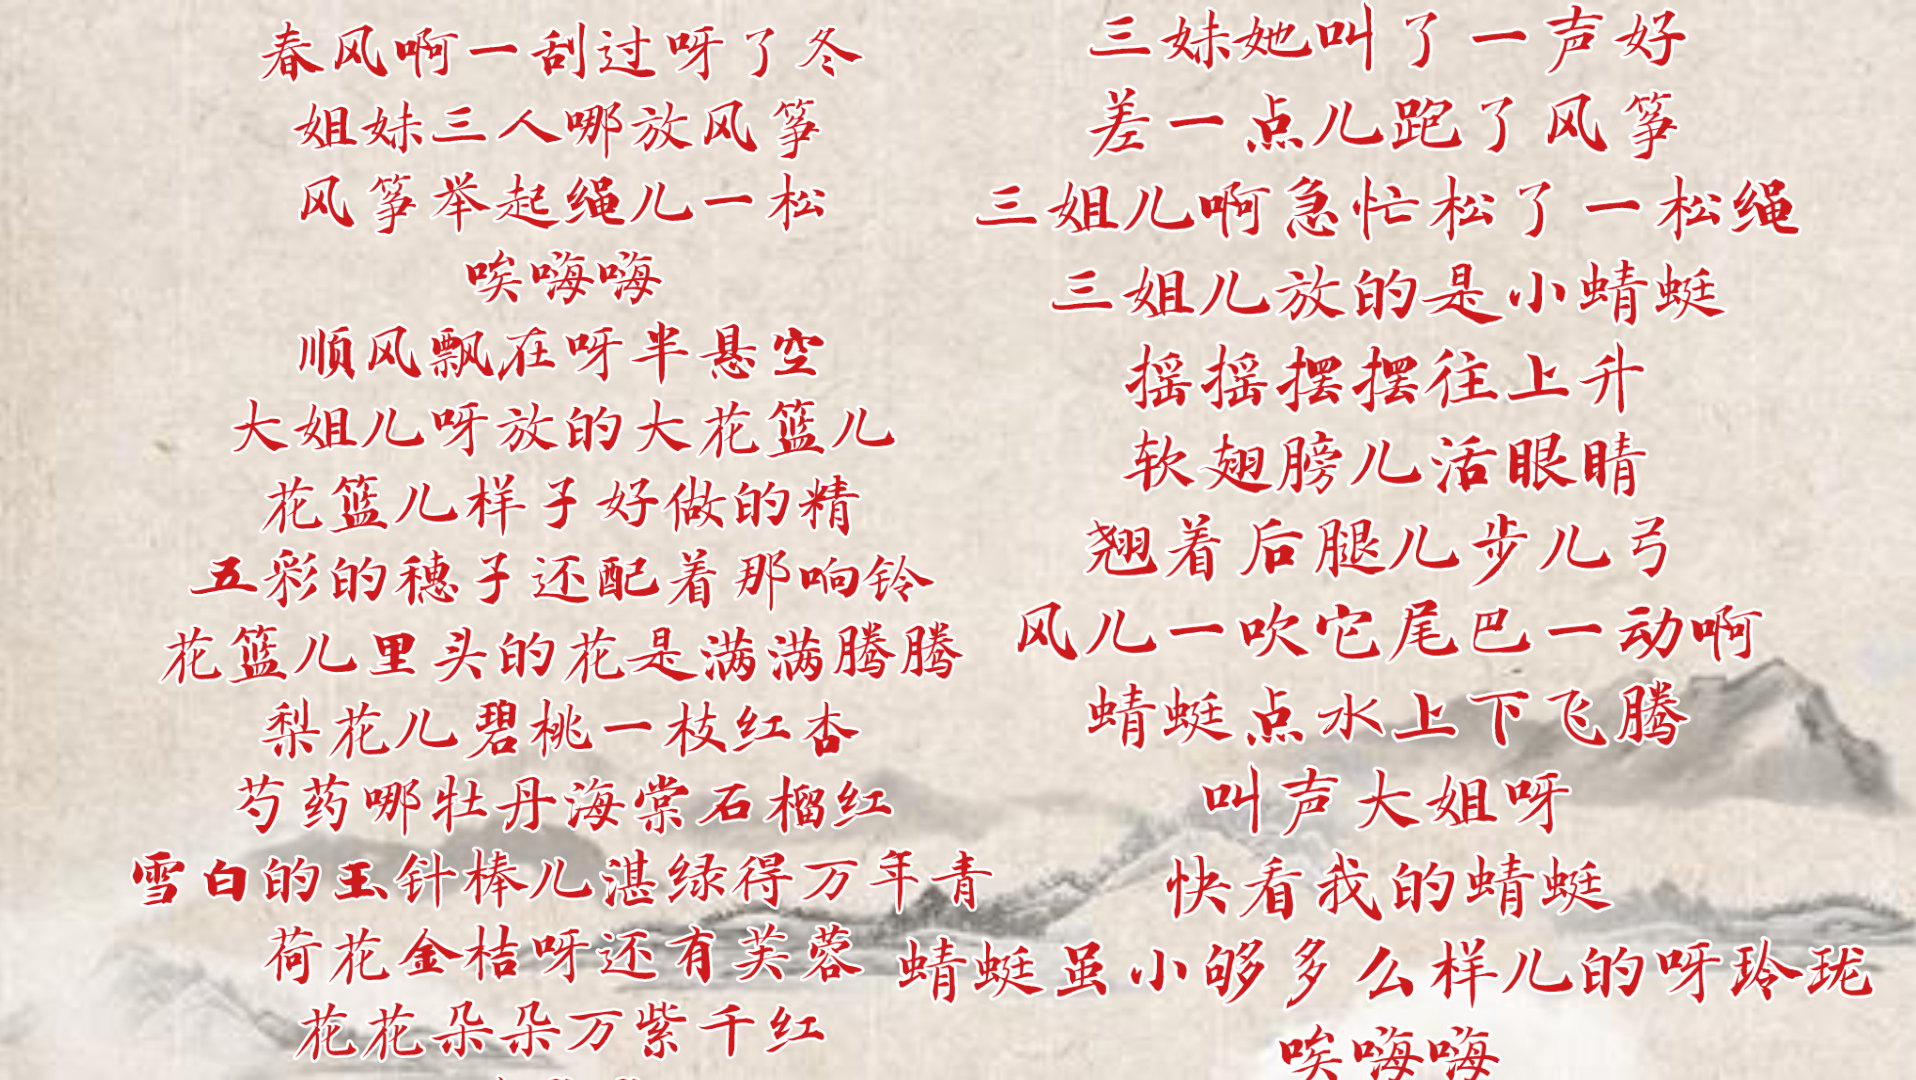 春风啊一刮过呀了冬
姐妹三人哪放风筝
风筝举起绳儿一松
唉嗨嗨
顺风飘在呀半悬空
大姐儿呀放的大花篮儿
花篮儿样子好做的精
五彩的穗子还配着那响铃
花篮儿里头的花是满满腾腾
梨花儿碧桃一枝红杏
芍药哪牡丹海棠石榴红
雪白的玉针棒儿湛绿得万年青
荷花金桔呀还有芙蓉
花花朵朵万紫千红
三妹她叫了一声好
差一点儿跑了风筝
三姐儿啊急忙松了一松绳
三姐儿放的是小蜻蜓
摇摇摆摆往上升
软翅膀儿活眼睛
翘着后腿儿步儿弓
风儿一吹它尾巴一动啊
蜻蜓点水上下飞腾
叫声大姐呀
快看我的蜻蜓
蜻蜓虽小够多么样儿的呀玲珑
唉嗨嗨